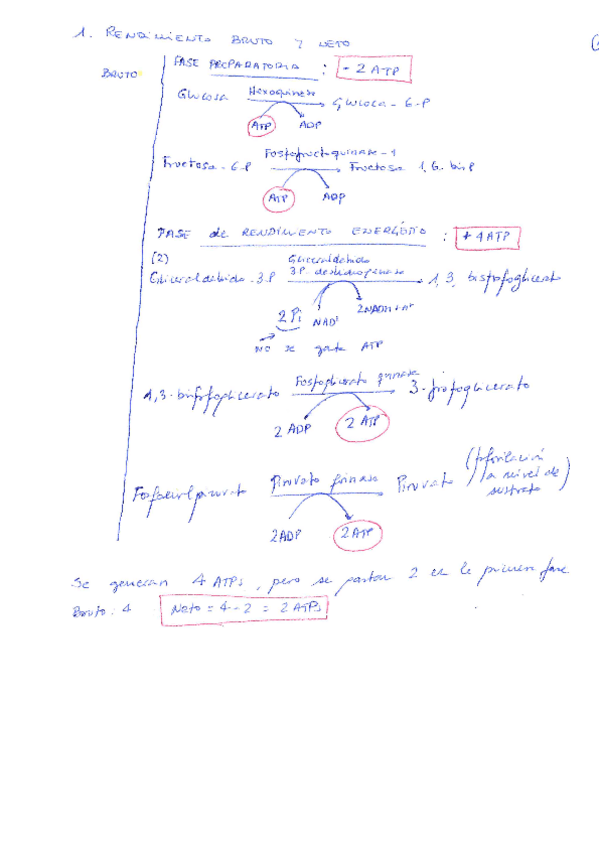 1. RENDIMIENTO BRUTO Y NETO
BRUTO
FASE PREPARATORIA : - 2 ATP
Glucosa Hexoquinasa Glucosa - 6-P
ATP ADP
Fructosa - 6-P Fosfofructoquinasa - 1 Fructosa 1,6-bisP
ATP ADP
FASE de RENDIMIENTO ENERGÉTICO : + 4 ATP
(2)
Gliceraldehido
Gliceraldehido - 3P 3P. deshidrogenasa 1,3, bisfosfoglicerato
2 Pi NAD+ 2NADH + H+
NO se gasta ATP
1,3-bisfosfoglicerato Fosfoglicerato quinasa 3-fosfoglicerato
2 ADP 2 ATP
Fosfoenolpiruvato Piruvato quinasa Piruvato (fosforilación
a nivel de
sustrato)
2ADP 2ATP
Se generan 4 ATPs, pero se gastan 2 en la primera fase
Bruto: 4 Neto = 4 - 2 = 2 ATPs